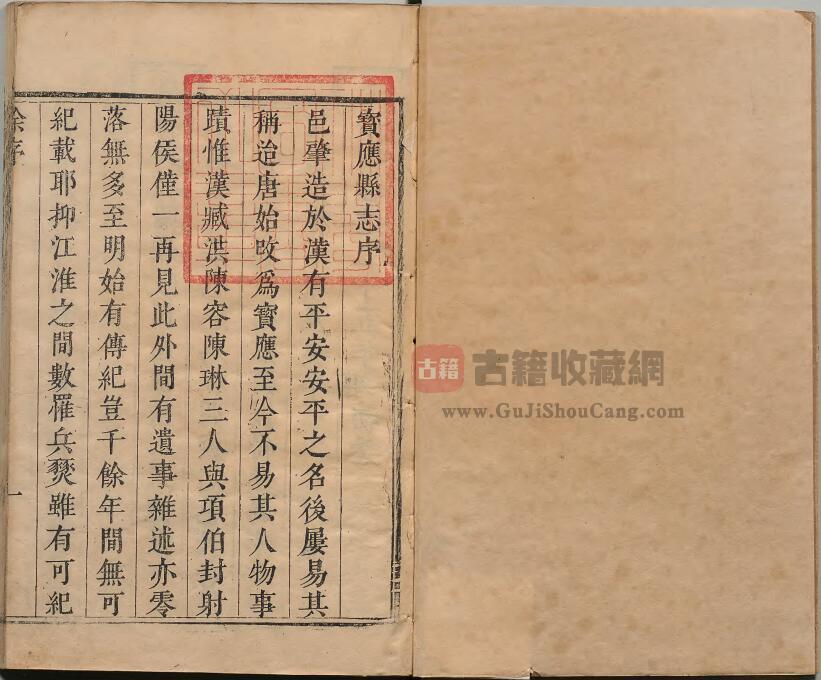 寶應縣志序
邑肇造於漢有平安安平之名後屢易其
稱迨唐始改爲寶應至今不易其人物事
蹟惟漢臧洪陳容陳琳三人與項伯封射
陽侯僅一再見此外間有遺事雜述亦零
落無多至明始有傳紀豈千餘年間無可
紀載耶抑江淮之間數罹兵燹雖有可紀
序
一
古籍
古籍收藏網
www.GuJiShouCang.com